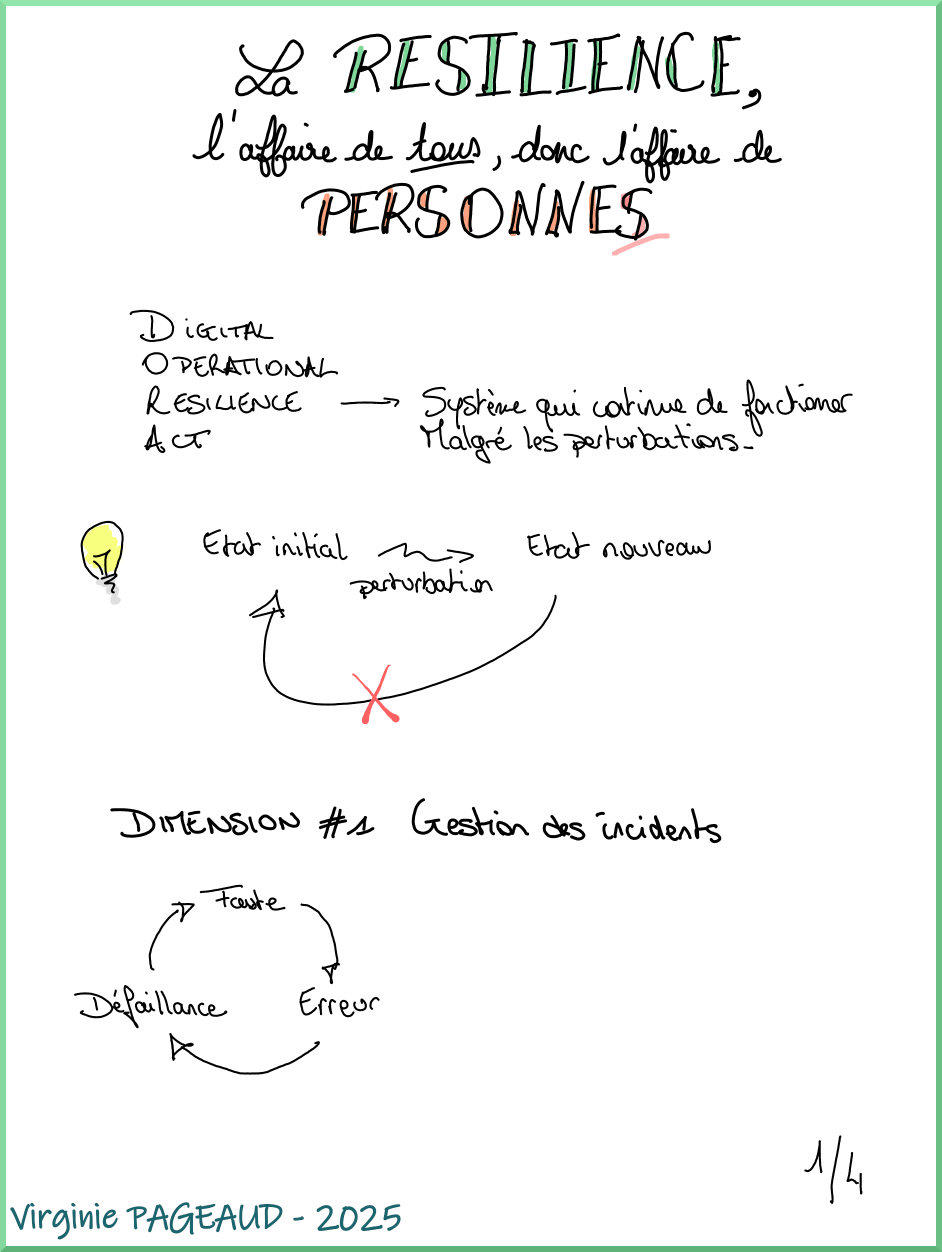 La RESILIENCE,
l'affaire de tous, donc l'affaire de
PERSONNES
DIGITAL
OPERATIONAL
RESILIENCE → Système qui continue de fonctionner
ACT Malgré les perturbations.
Etat initial perturbation Etat nouveau
DIMENSION #1 Gestion des incidents
Faute
Défaillance Erreur
1/4
Virginie PAGEAUD - 2025